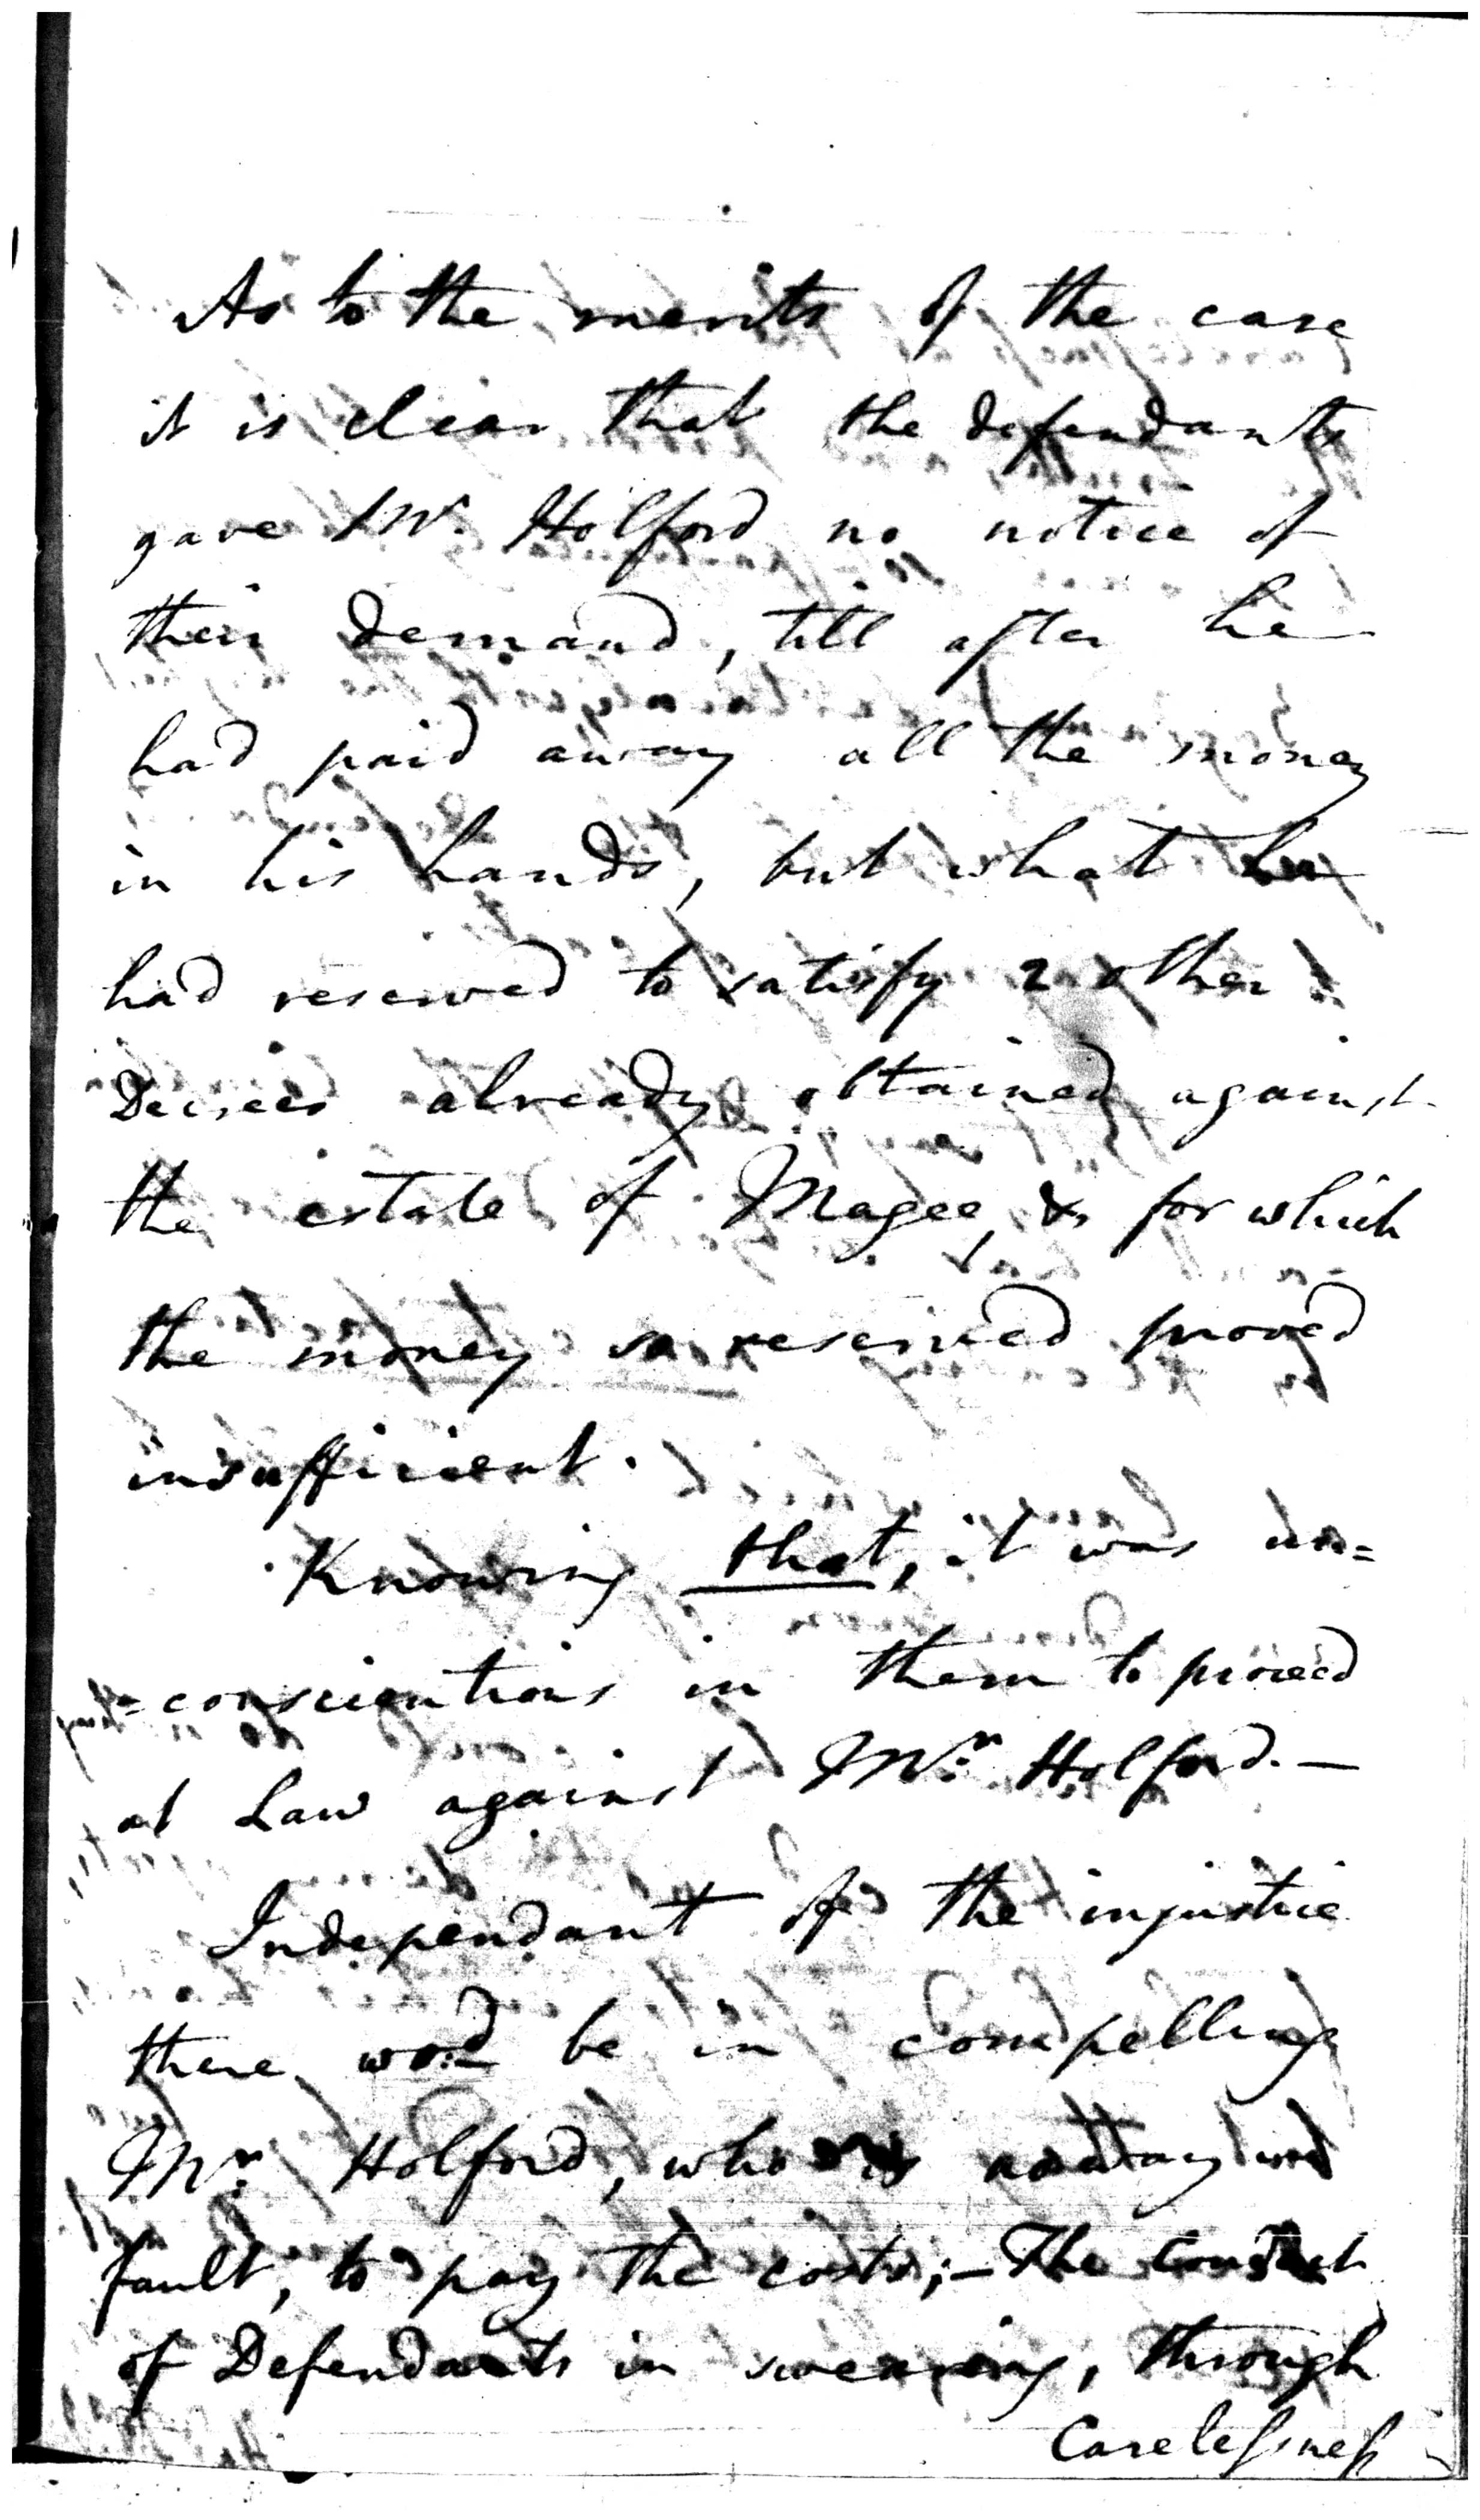 As to the merits of the case
it is clear that the defendants
gave Mr. Holford no notice of
their demand, till after he
had paid away all the money
in his hands, but what he
had reserved to satisfy 2 other
Decrees already obtained against
the estate of Magee, & for which
the money so reserved proved
insufficient.
Knowing that, it was un=
=conscientious in them to proceed
at Law against Mr. Holford. —
Independant of the injustice
there wod. be in compelling
Mr. Holford, who is
fault, to pay the costs; — The Conduct
of Defendants in swearing, through
Carelessness